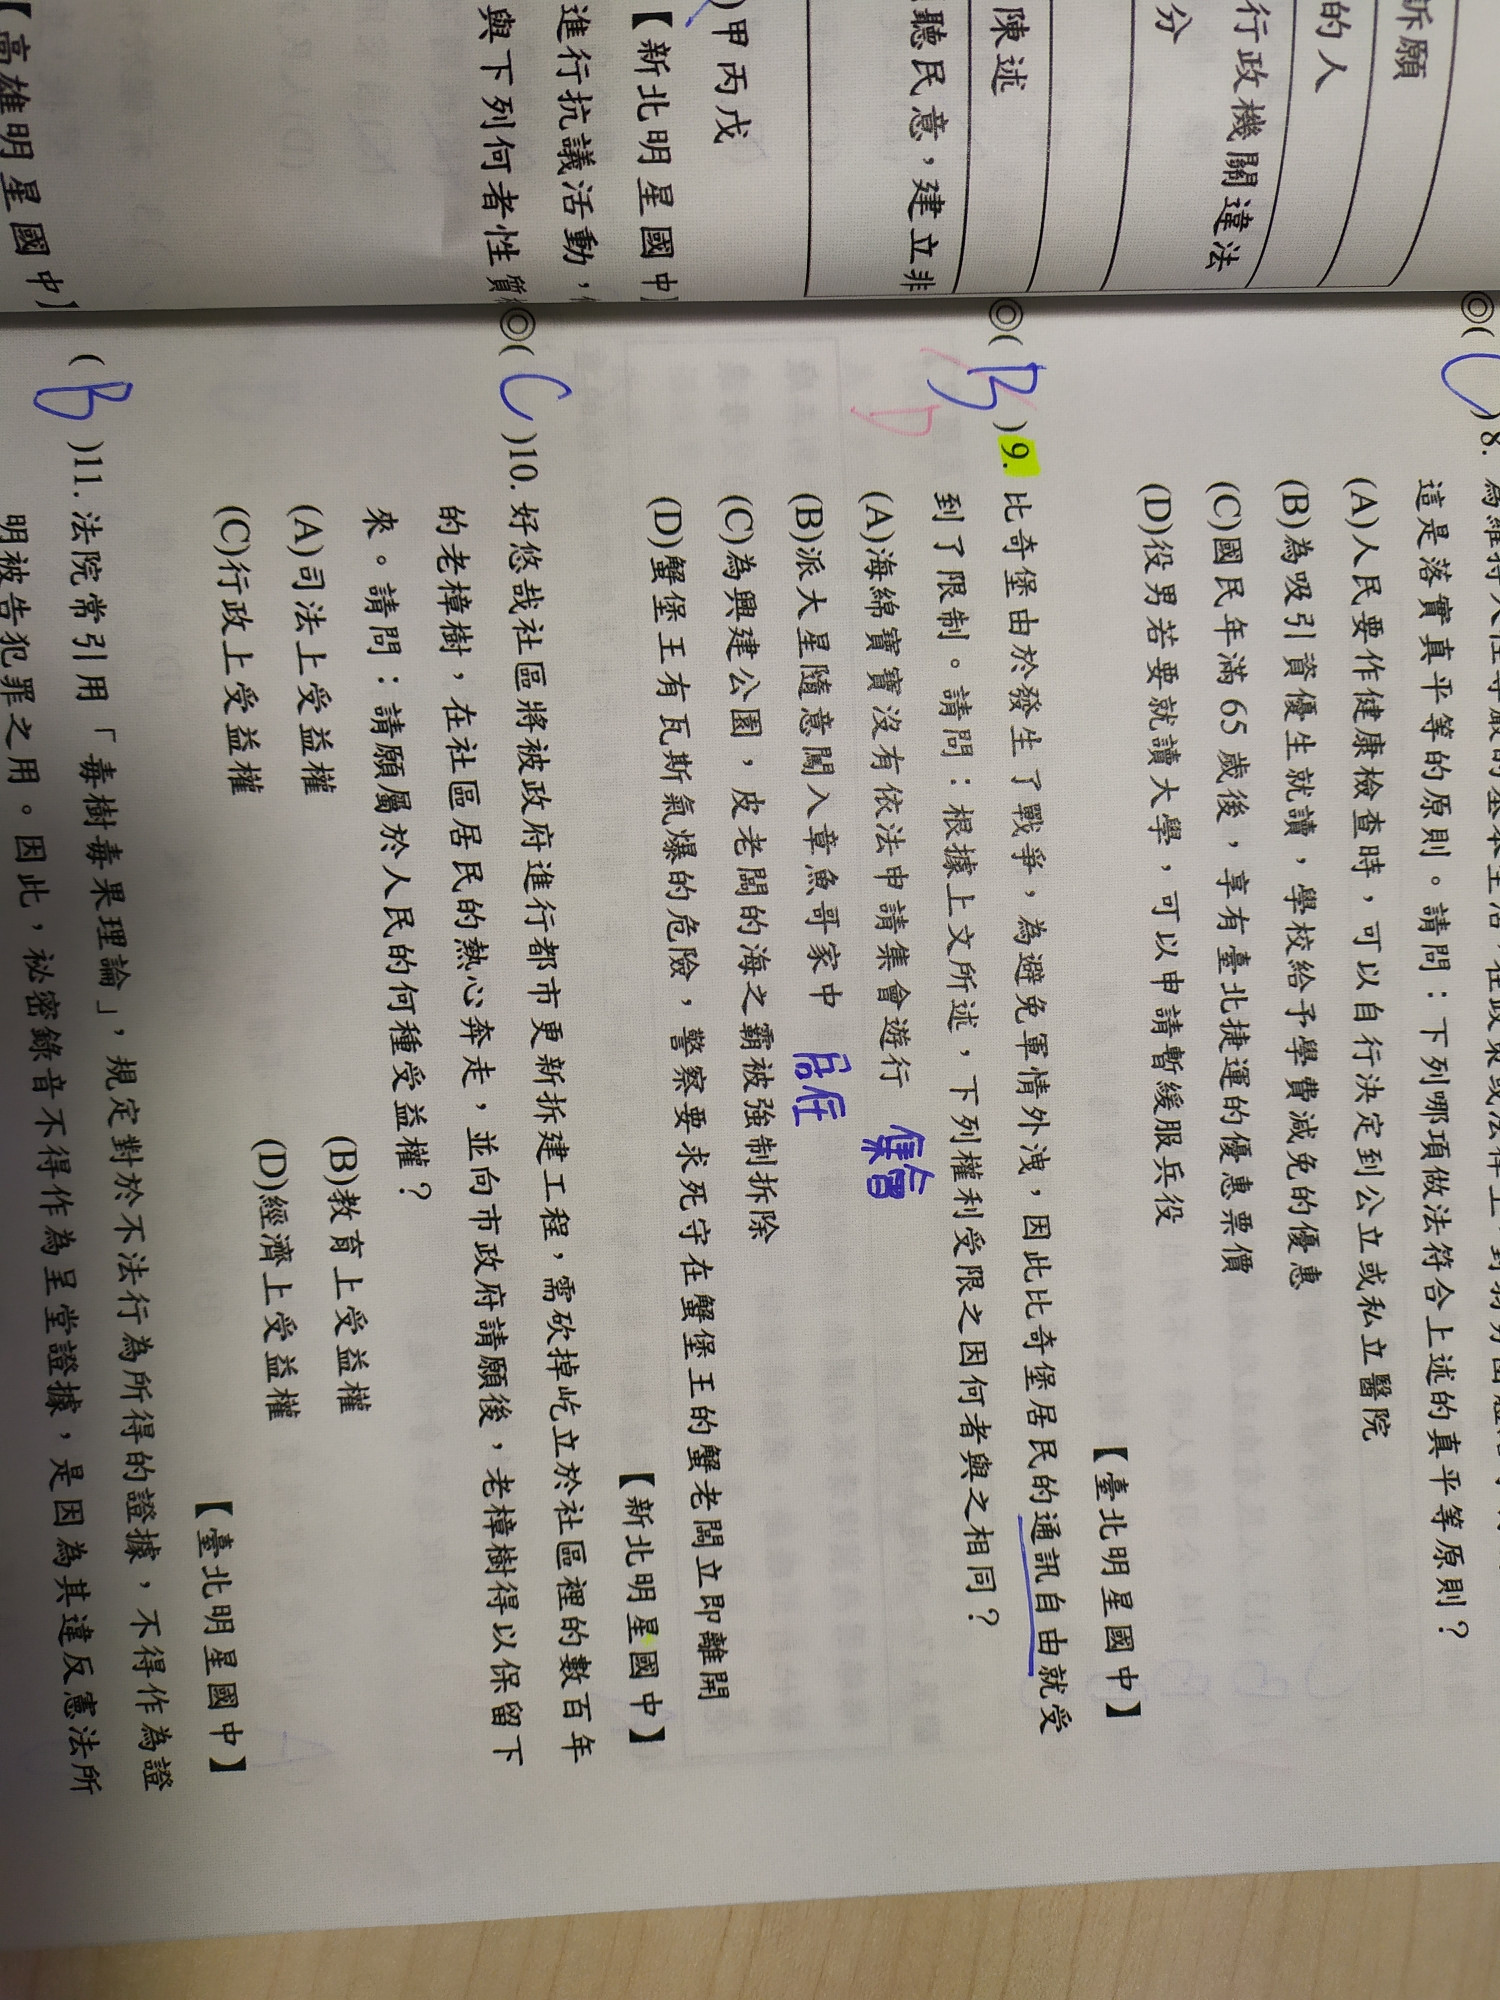 訴願
的人
行政機關違法
分
陳述
聽民意，建立非
)甲丙戊
【新北明星國中】
進行抗議活動，
與下列何者性質
【高雄明星國中】
◎( C )8.
這是落實真平等的原則。請問：下列哪項做法符合上述的真平等原則？
(A)人民要作健康檢查時，可以自行決定到公立或私立醫院
(B)為吸引資優生就讀，學校給予學費減免的優惠
(C)國民年滿65歲後，享有臺北捷運的優惠票價
(D)役男若要就讀大學，可以申請暫緩服兵役
【臺北明星國中】
◎( B )9. 比奇堡由於發生了戰爭，為避免軍情外洩，因此比奇堡居民的通訊自由就受
D
到了限制。請問：根據上文所述，下列權利受限之因何者與之相同？
(A)海綿寶寶沒有依法申請集會遊行 集會
(B)派大星隨意闖入章魚哥家中 居住
(C)為興建公園，皮老闆的海之霸被強制拆除
(D)蟹堡王有瓦斯氣爆的危險，警察要求死守在蟹堡王的蟹老闆立即離開
【新北明星國中】
◎( C )10. 好悠哉社區將被政府進行都市更新拆建工程，需砍掉屹立於社區裡的數百年
的老樟樹，在社區居民的熱心奔走，並向市政府請願後，老樟樹得以保留下
來。請問：請願屬於人民的何種受益權？
(A)司法上受益權 (B)教育上受益權
(C)行政上受益權 (D)經濟上受益權
【臺北明星國中】
( B )11. 法院常引用「毒樹毒果理論」，規定對於不法行為所得的證據，不得作為證
明被告犯罪之用。因此，祕密錄音不得作為呈堂證據，是因為其違反憲法所